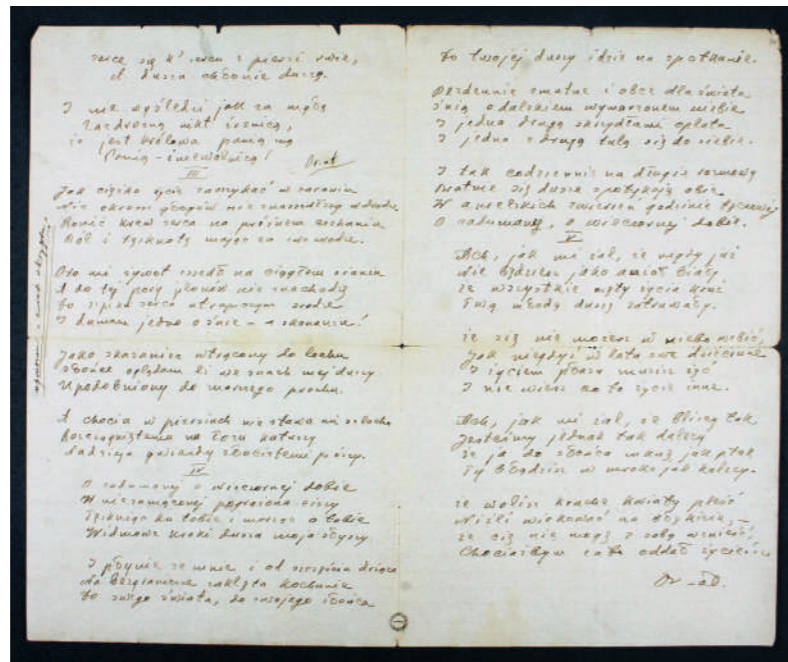 serce się k' sercu z piersi rwie,
A dusza chłonie duszę.
I nie wyśledzi jak za mgłą
Zazdrosną nikt źrenicą,
iż jest królową panią mą
Panią - niewolnicą!
Or-ot
III
Jak ciężko życie zamykać w zaraniu
Nie okroni głogów nie znamdłszy w drodze
Ronić krew serca na próżnem czekaniu
Ból i tęsknotę mając za swe wodze.
Oto mi żywot zszedł na ciągłem sianiu
A do tej pory plonów nie znachodzę
I dumam jedno o śnie - o skonaniu!
Jako skazaniec wtrącony do lochu
słońce oglądam li we snach mej duszy
Upodobniony do marnego prochu.
A chocia w piersiach nie stawa mi szlochu
Nadzieja gwiazdy złocistemi prószy.
IV
O zadumanej o wieczornej dobie
W niezmąconej pogrążona ciszy
Tęskniąca ku tobie i marząca o tobie
Widmowe kroki dusza moja słyszy
I płynie ze mnie i od szczęścia drżąca
Na bezgraniczne zaklęta kochanie
Do swego świata, do swojego słońca
Do twojej duszy idzie na spotkanie.
Bezdennie smutne i obce dla świata
Śnią o dalekiem wymarzonem niebie
I jedna drugą skrzydłami oplata
I jedna z drugą tulą się do siebie.
I tak codziennie na długie rozmowy
Smutne się dusze spotykają obie
W anielskich zwierzeń godzinie
O zadumanej, o wieczornej dobie.
V
Ach, jak mi żal, że nigdy już
Nie będziesz jako anioł biały
że wszystkie męty życia kruż
Twą młodą duszę zatruwały.
że się nie możesz w niebo wzbić,
Jak niegdyś w lata swe dziecinne
I życiem płaza musisz żyć
I nie wiesz co to życie inne.
Ach, jak mi żal, że bliscy tak
Jesteśmy jednak tak dalecy
że ja do słońca mknę jak ptak
Ty błądzisz w mroku jak kalecy.
że wolisz kruche kwiaty pleść
Niźli wiekować na błękicie, -
że cię nie mogę z sobą wznieść,
Chociażbym za to oddał życie
Or-ot.